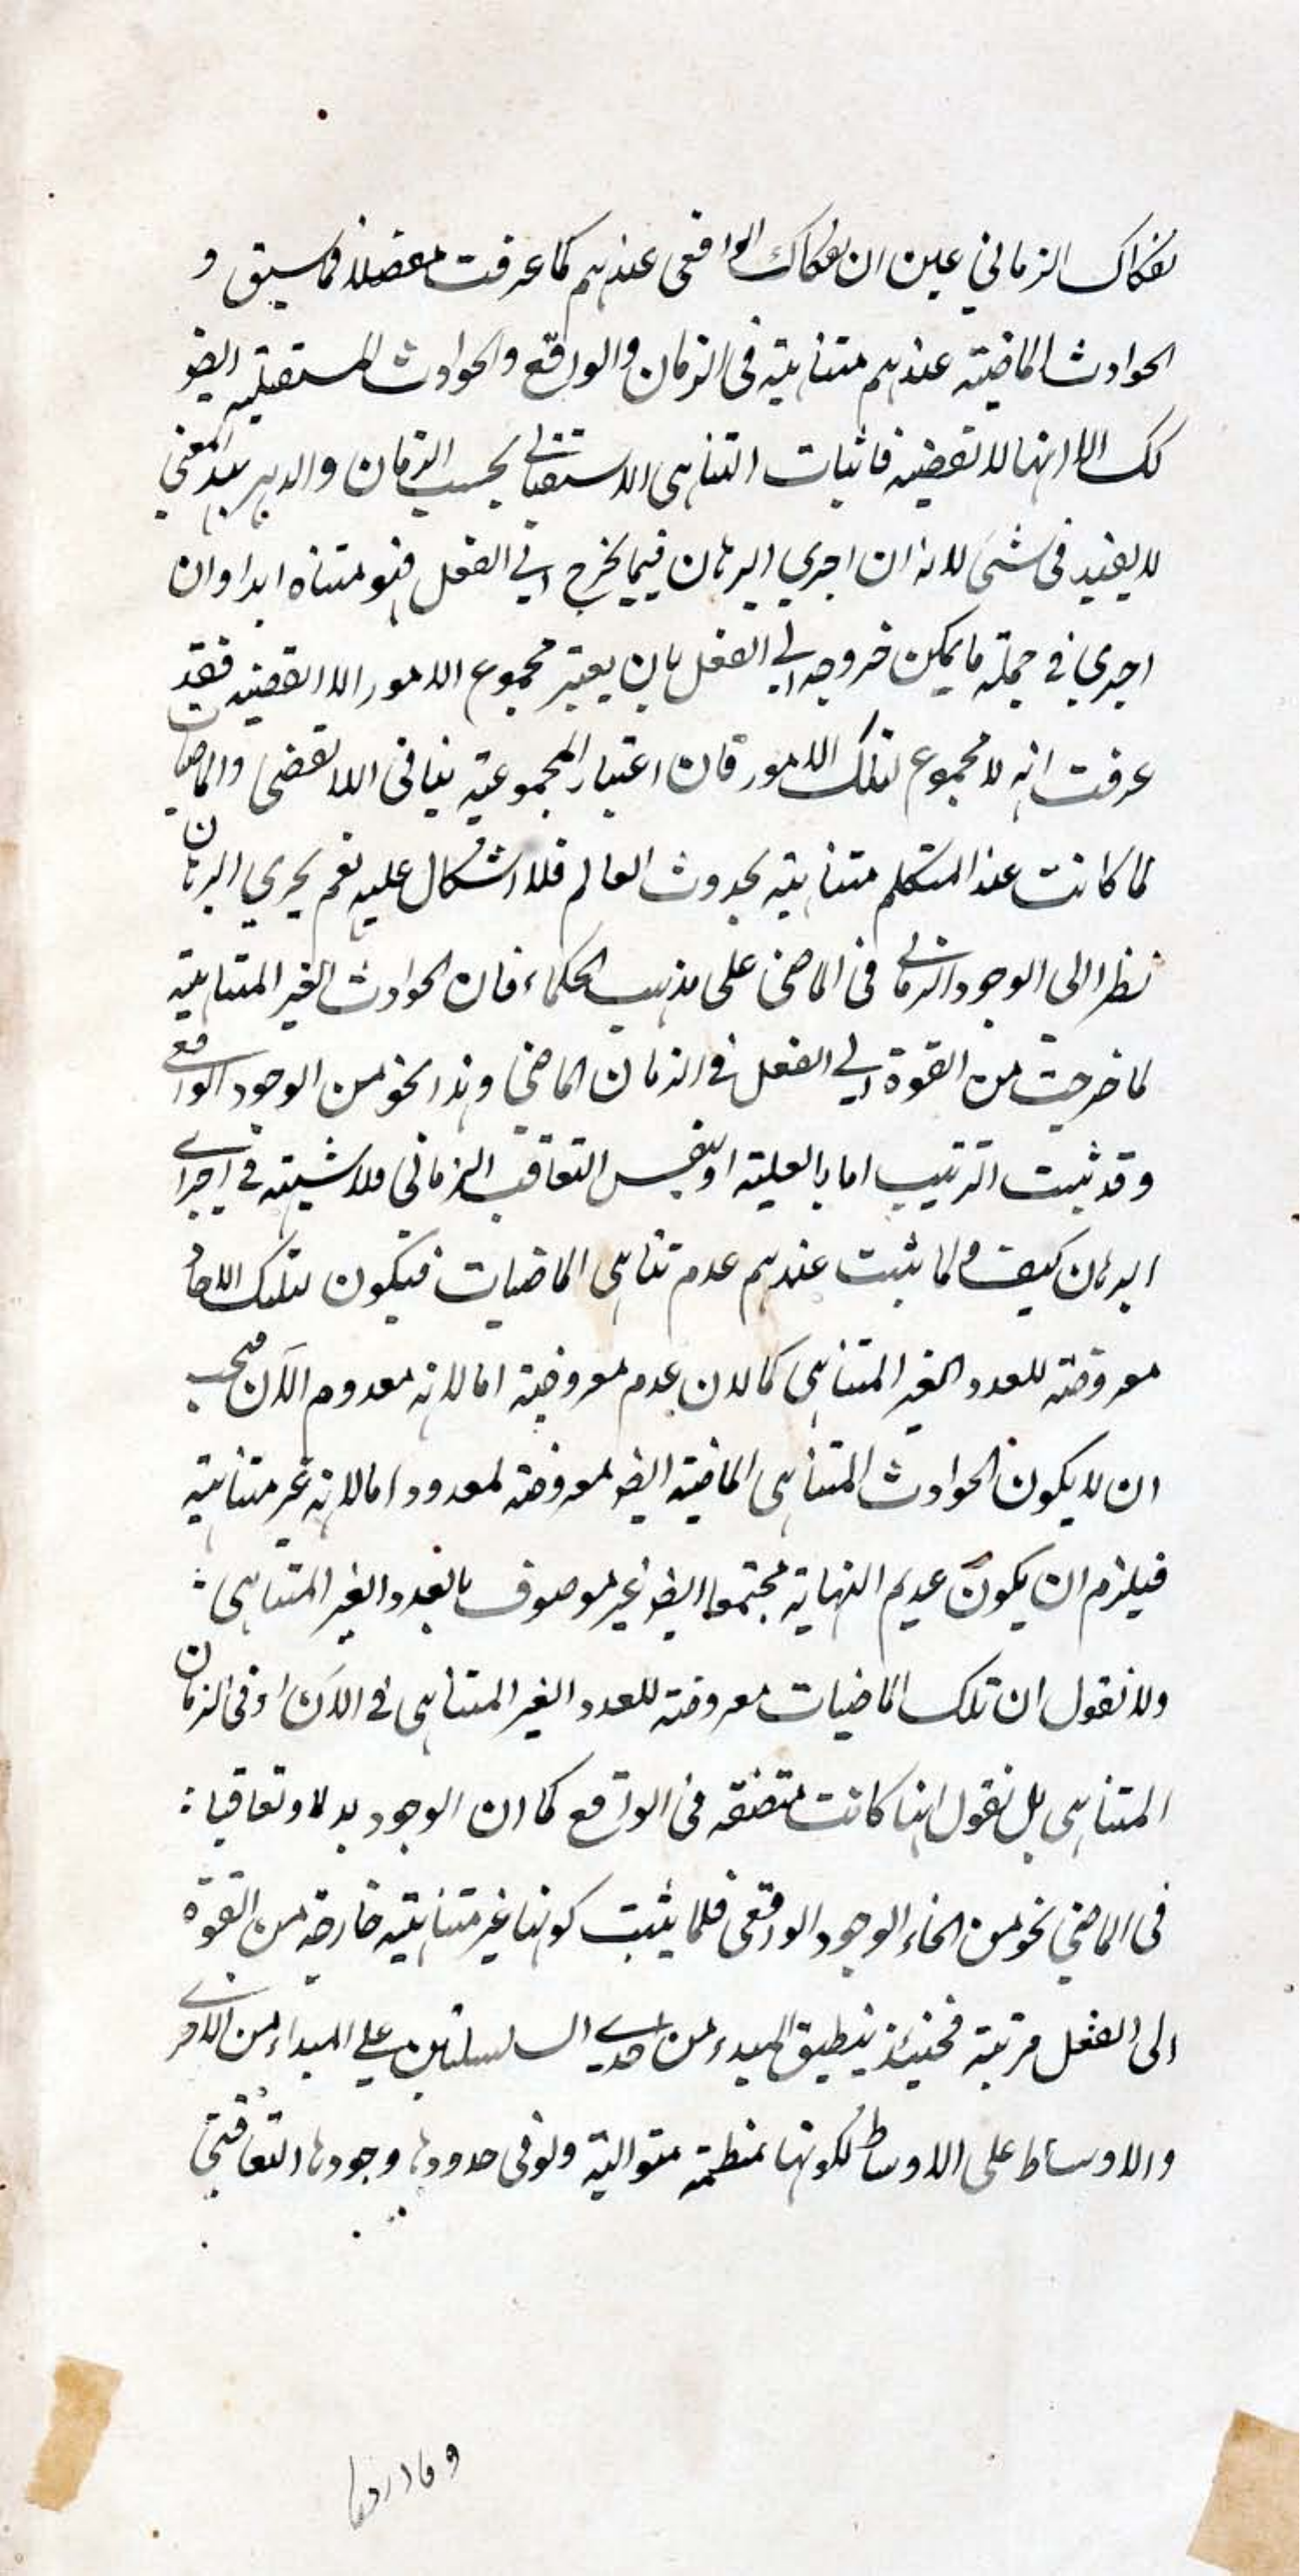 نفكاك الزماني عين ان نفكاك الواقعي عندهم كما عرفت مفصلا فما سبق و
الحوادث الماضية عندهم متناهية في الزمان والواقع والحوادث المستقبلية ايضو
كك الا انها لا تقضيه فاثبات التناهي الاستقبالي بحسب الزمان والدهر بهذا المعنى
لا يفيد في شئ لانه ان اجري البرهان فيما يخرج الي الفعل فهو متناه ابدا وان
اجري في جملة ما يمكن خروجه الي الفعل بان يعتبر مجموع الامور اللاتقضيه فقد
عرفت انه لا مجموع لتلك الامور فان اعتبار المجموعية ينافي اللاتقضى والماضيات
لما كانت عند المتكلم متناهية بحدوث العالم فلا اشكال عليه نعم يجري البرهان
نظرا الى الوجود الزماني في الماضي على مذهب الحكماء فان الحوادث الغير المتناهية
لما خرجت من القوة الي الفعل في الزمان الماضي وهذا نحو من الوجود الواقعي
وقد ثبت الترتيب اما بالعلية او بنفس التعاقب الزماني فلا شبهة في اجراي
البرهان كيف ولما ثبت عندهم عدم تناهي الماضيات فيكون لتلك الاحاد
معروضة للعدد الغير المتناهي كما لان عدم معروضية اما لانه معدوم الآن فيجب
ان لا يكون الحوادث المتناهي الماضية ايضو معروضة لمعدود اما لانه غير متناهية
فيلزم ان يكون عديم النهاية مجتمعا ايضو غير موصوف بالعدد الغير المتناهي
ولا نقول ان تلك الماضيات معروضة للعدد الغير المتناهي في الآن او في الزمان
المتناهي بل نقول انها كانت متصفه في الواقع كما ان الوجود بدلا وتعاقبا
في الماضي نحو من انحاء الوجود الواقعي فلما يثبت كونها غير متناهية خارجة من القوة
الى الفعل مرتبة فحينئذ ينطبق المبدء من احدي السلسلتين علي المبداء من الاخرى
والاوساط على الاوساط لكونها منطمة متوالية ولو في حدودها وجودها التعاقبي